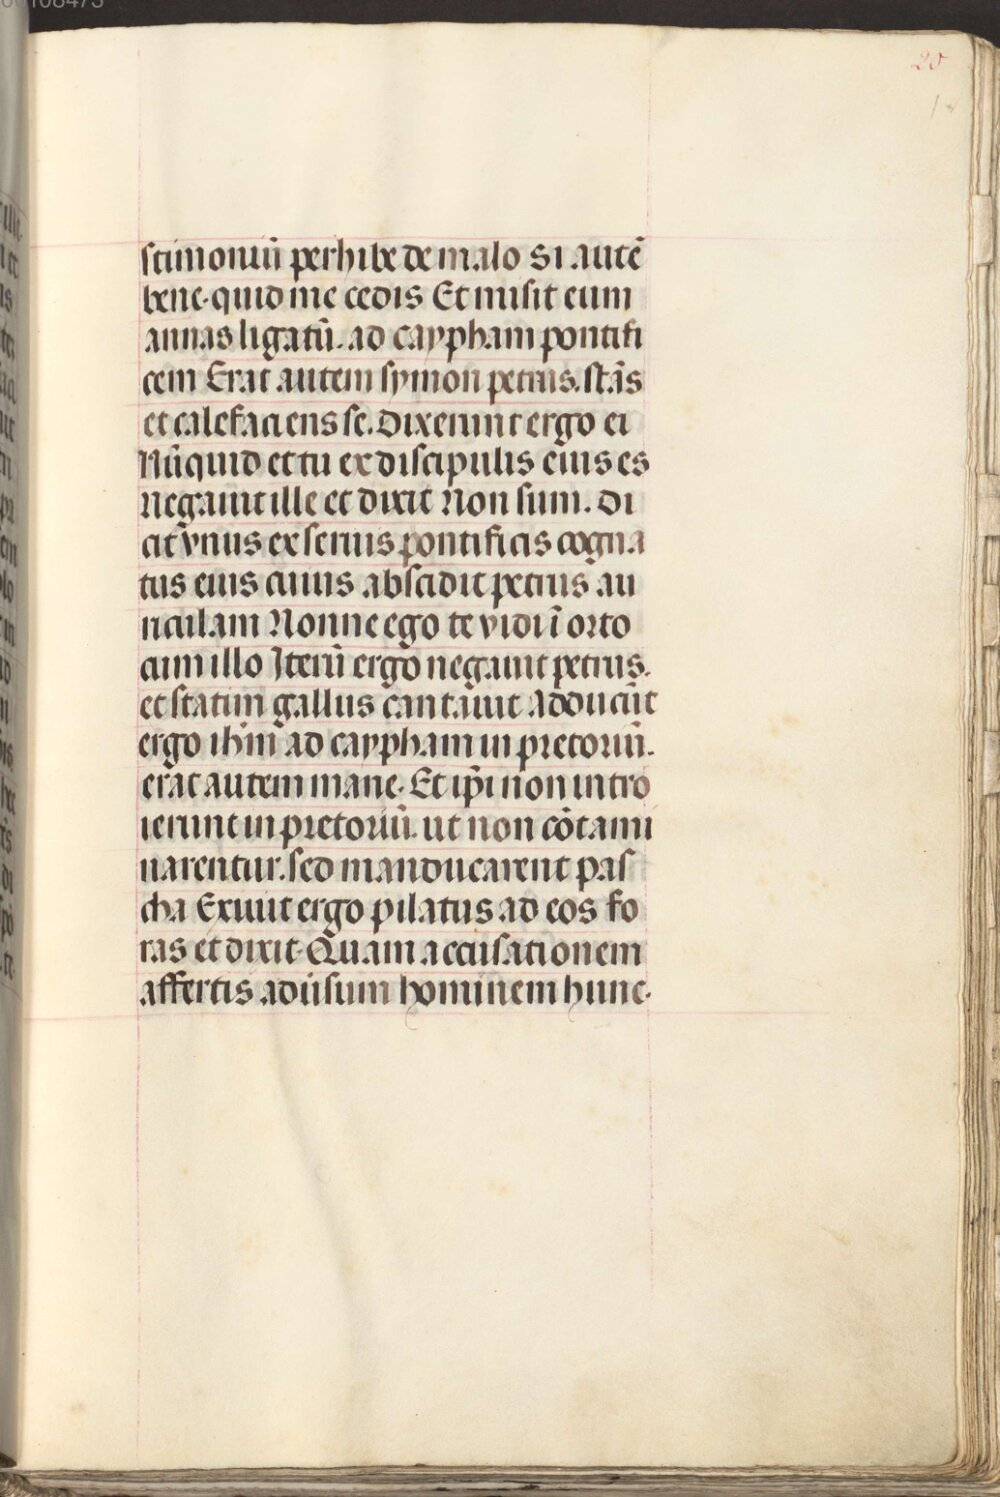 20
stimoniū perhibe de malo Si autē
bene·quid me cedis Et misit eum
annas ligatū. ad caypham pontifi
cem Erat autem symon petrus. stās
et calefaciens se. Dixerunt ergo ei
Nūquid et tu ex discipulis eius es
negauit ille et dixit Non sum. Di
cit vnus ex seruis pontificis cogna
tus eius cuius abscidit petrus au
riculam Nonne ego te vidi ī orto
cum illo Iterū ergo negauit petrus.
et statim gallus cantauit Adducūt
ergo ihm̄ ad caypham in pretoriū.
erat autem mane· Et ip̄i non intro
ierunt in pretoriū. ut non cōtami
narentur. sed manducarent pas
cha Exiuit ergo pilatus ad eos fo
ras et dixit· Quam accusationem
affertis adūsum hominem hunc·